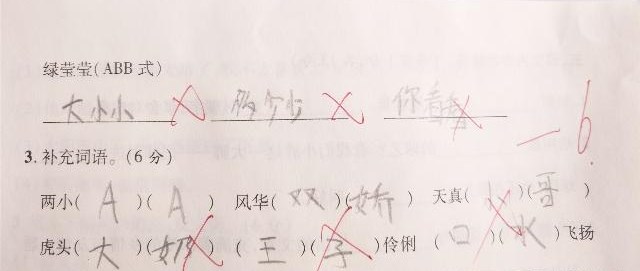 绿莹莹(ABB 式)
大小小 多少少 你看看
-6
3. 补充词语。(6 分)
两小( A )( A ) 风华( 双 )( 娇 ) 天真( )( 哥 )
虎头( 大 )( 奶 ) ( 王 )( 子 )伶俐 ( 口 )( 水 )飞扬